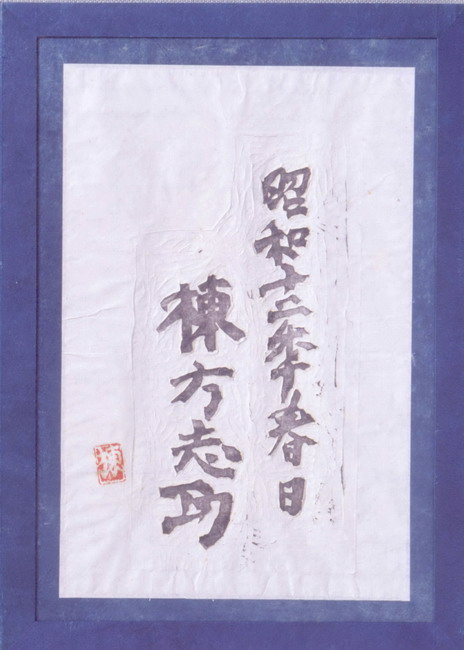 昭和十二年春日
棟方志功
棟